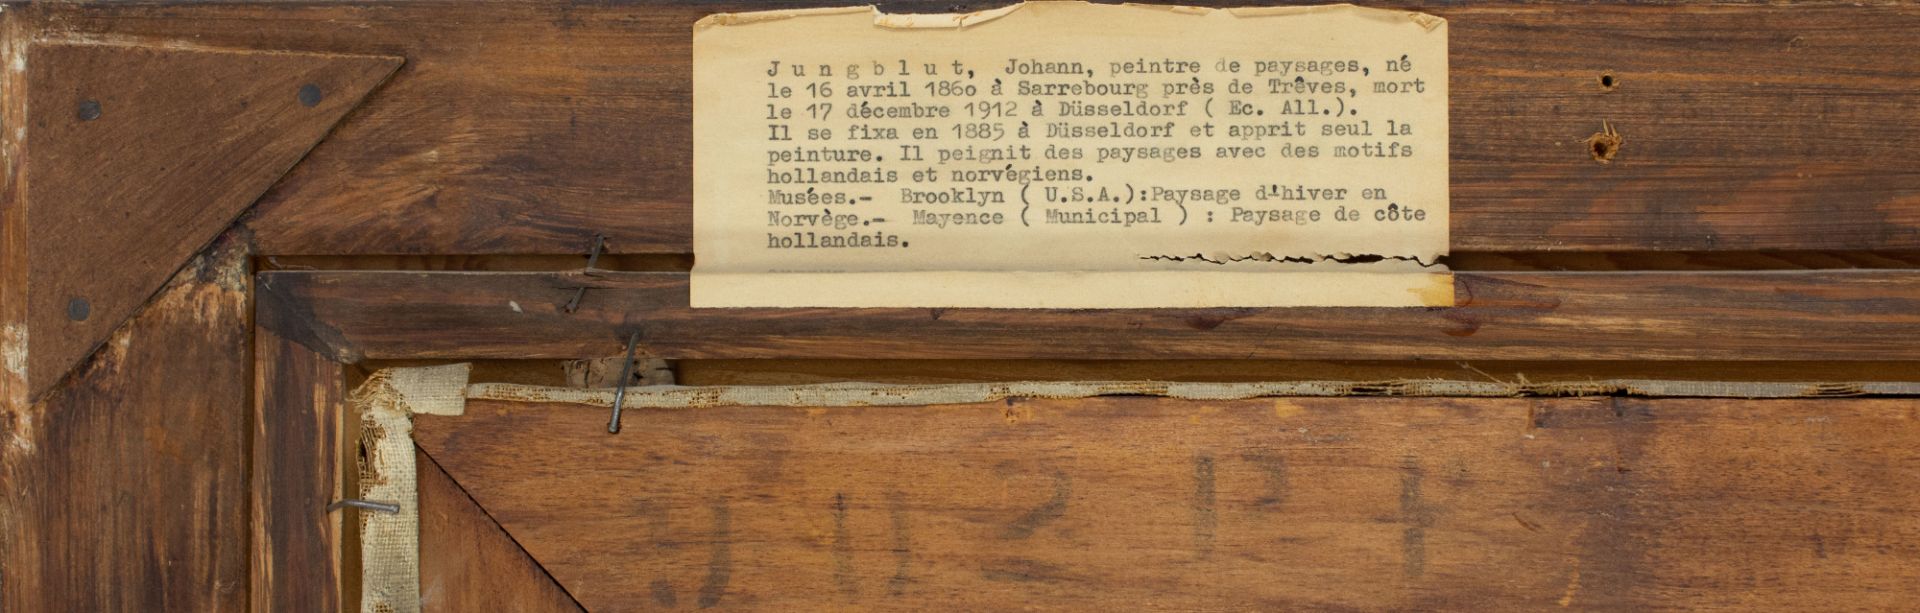 J u n g b l u t, Johann, peintre de paysages, né
le 16 avril 186o à Sarrebourg près de Trêves, mort
le 17 décembre 1912 à Düsseldorf ( Ec. All.).
Il se fixa en 1885 à Düsseldorf et apprit seul la
peinture. Il peignit des paysages avec des motifs
hollandais et norvégiens.
Musées.- Brooklyn ( U.S.A.):Paysage d'hiver en
Norvège.- Mayence ( Municipal ) : Paysage de côte
hollandais.